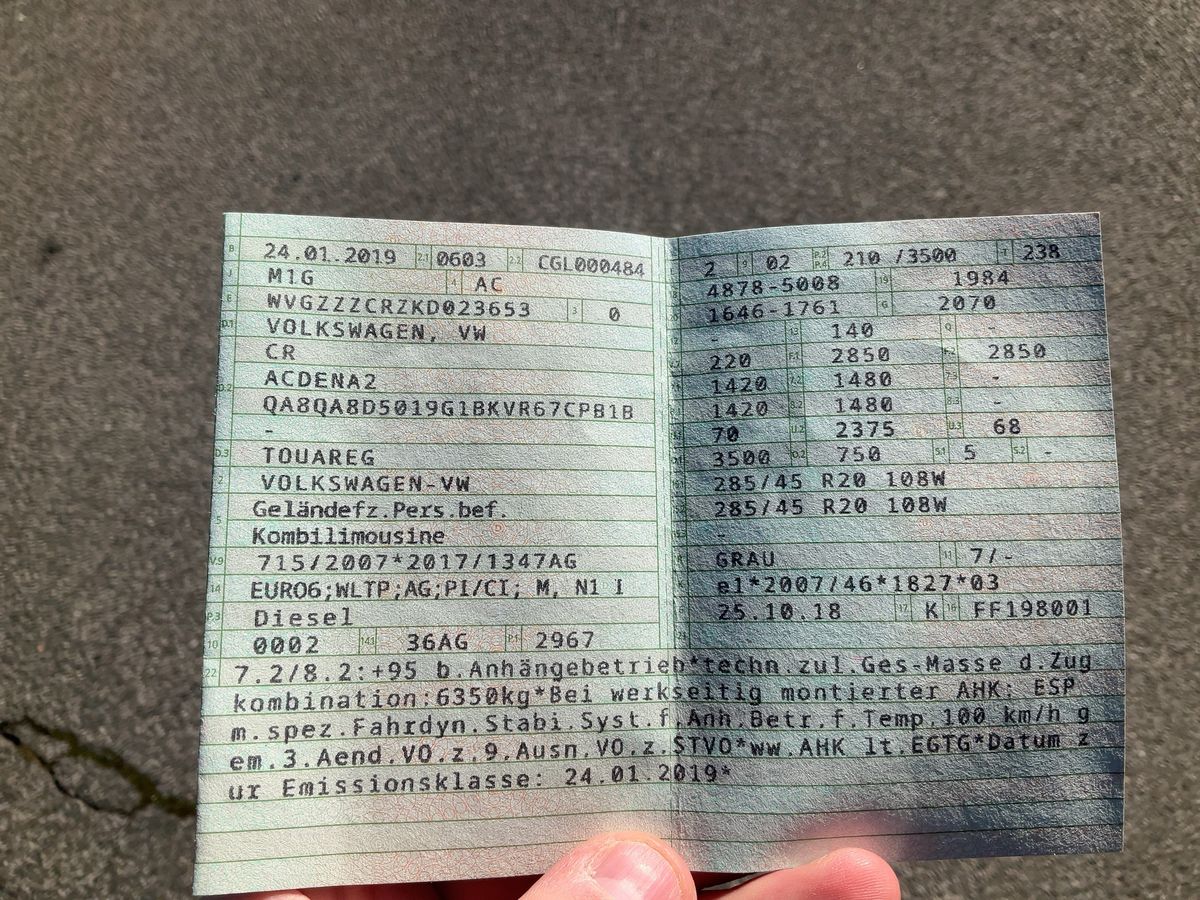 B 24.01.2019 2.1 0603 2.2 CGL000484
J M1G 4 AC
E WVGZZZCRZKD023653 3 0
D.1 VOLKSWAGEN, VW
CR
D.2 ACDENA2
QA8QA8D5019G1BKVR67CPB1B
-
D.3 TOUAREG
2 VOLKSWAGEN-VW
5 Geländefz.Pers.bef.
Kombilimousine
V.9 715/2007*2017/1347AG
14 EURO6;WLTP;AG;PI/CI; M, N1 I
P.3 Diesel
10 0002 14.1 36AG P.1 2967
2 9 02 P.2 P.4 210 /3500 T 238
4878-5008 19 1984
1646-1761 G 2070
- 13 140 Q -
220 F.1 2850 F.2 2850
1420 7.2 1480 -
1420 8.2 1480 8.3 -
70 U.2 2375 U.3 68
3500 O.2 750 S.1 5 S.2 -
285/45 R20 108W
285/45 R20 108W
-
GRAU 11 7/-
e1*2007/46*1827*03
25.10.18 17 K 16 FF198001
22 7.2/8.2:+95 b.Anhängebetrieb*techn.zul.Ges-Masse d.Zug
kombination:6350kg*Bei werkseitig montierter AHK: ESP
m.spez.Fahrdyn.Stabi.Syst.f.Anh.Betr.f.Temp.100 km/h g
em.3.Aend.VO.z.9.Ausn.VO.z.STVO*ww.AHK lt.EGTG*Datum z
ur Emissionsklasse: 24.01.2019*